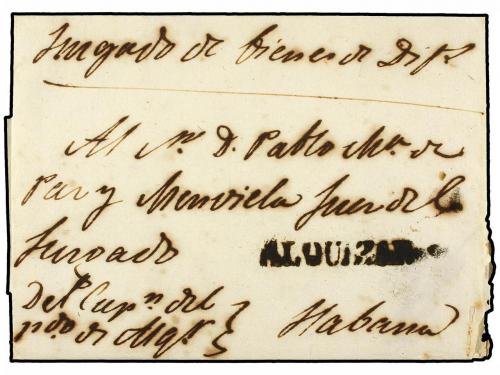 Jusgado de bienes de Difs
Al Sr. D. Pablo Ma. de
Paz y Menviela Juez del
Jusgado
ALQUIZAR
Habana
Del Capn. del
pdo. de Alqr.